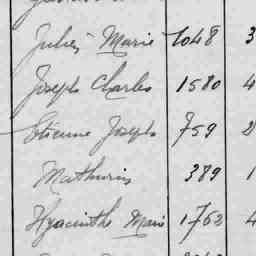 Julien Marie 1048 3
Joseph Charles 1580 4
Etienne Joseph 759 2
Mathurin 389 1
Hyacinthe Marie 1762 4